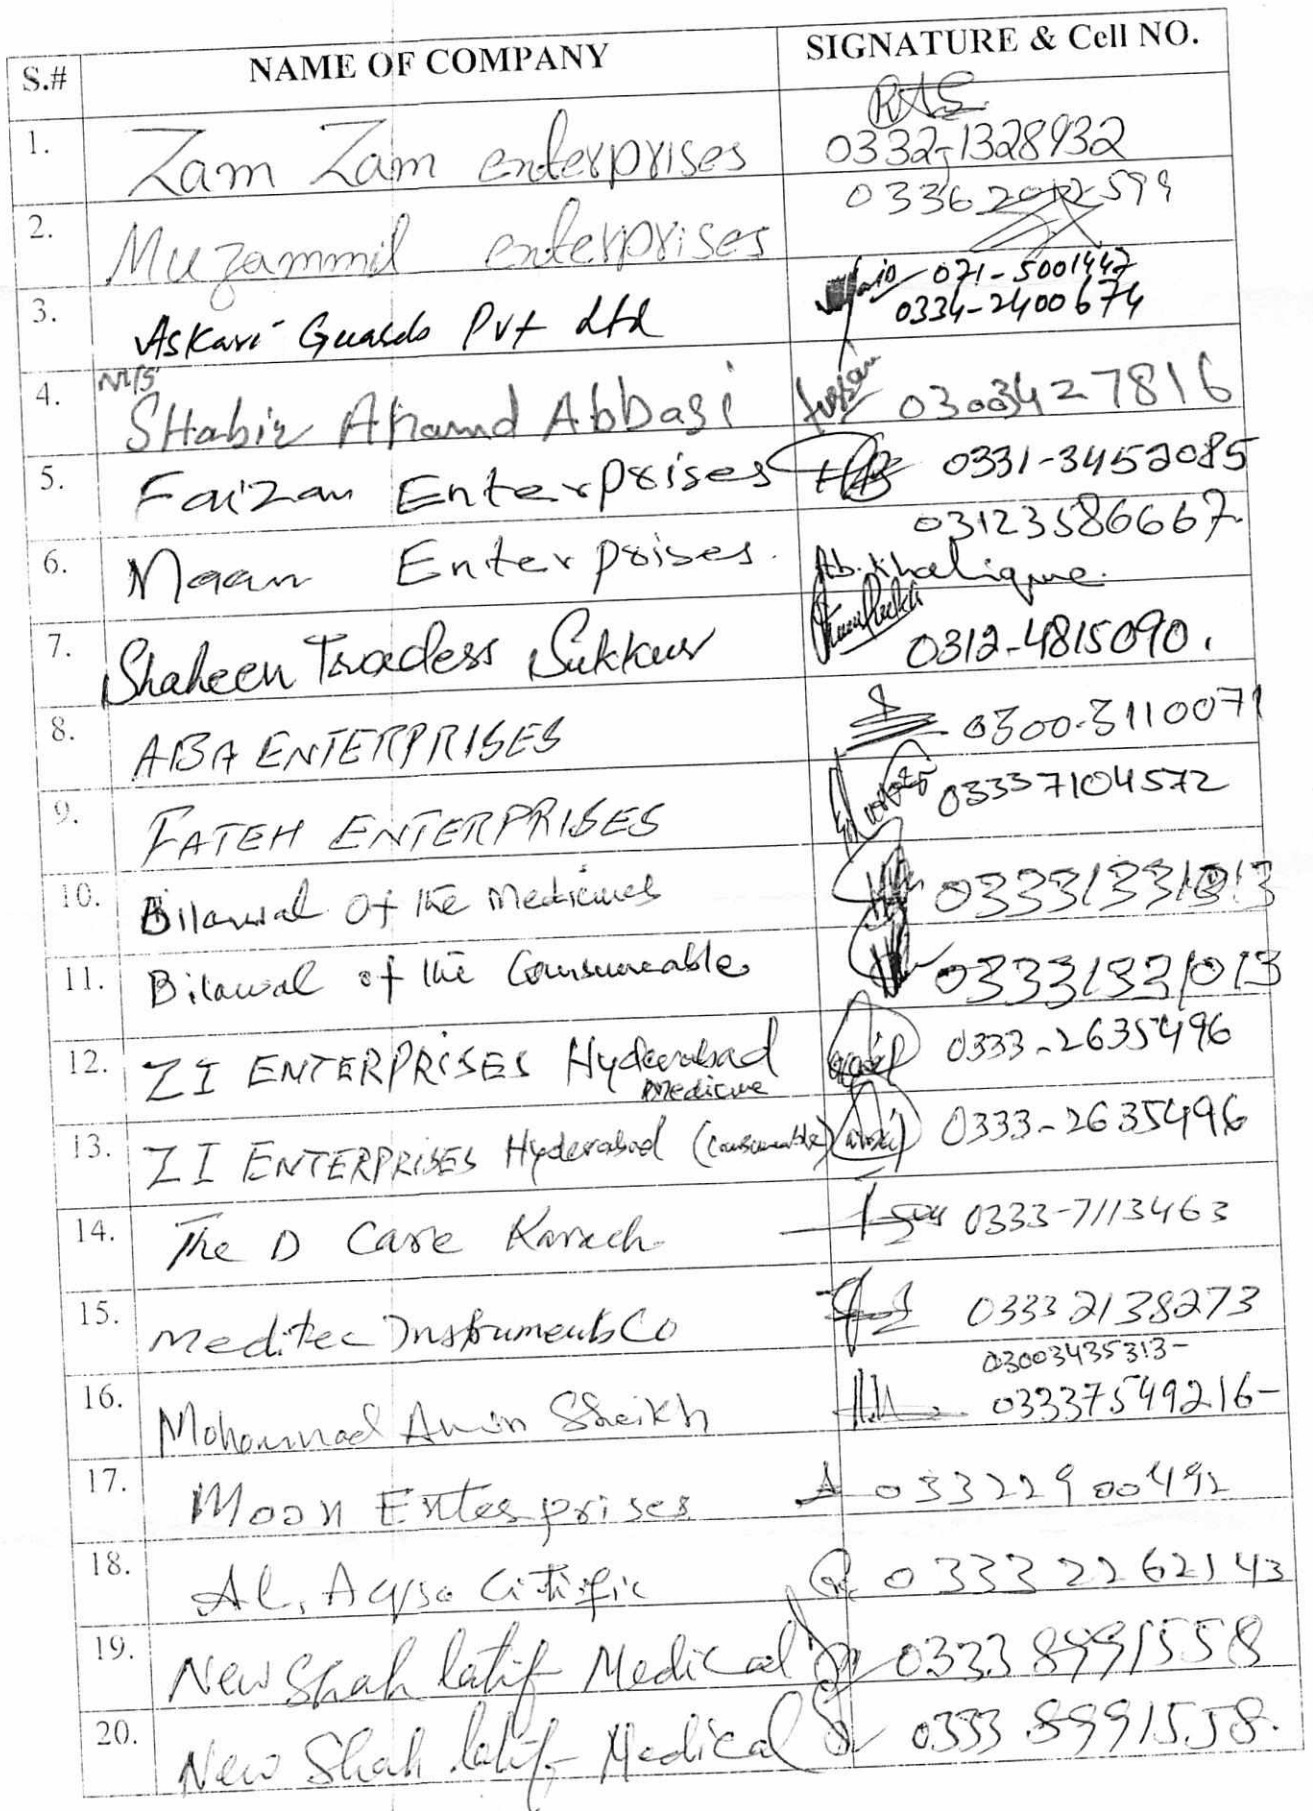 S.# NAME OF COMPANY SIGNATURE & Cell NO.
1. Zam Zam enterprises 0332-1328932
2. Muzammil enterprises 03362012599
3. Askari Guards Pvt Ltd 071-5001447
0334-2400674
4. M/S SHabir Ahamd Abbasi 03003427816
5. Faizan Enterprises 0331-3452085
6. Maan Enterprises. 03123586667
Ab. Khalique.
7. Shaheen Traders Sukkur 0312-4815090.
8. ABA ENTERPRISES 0300-3110071
9. FATEH ENTERPRISES 03337104572
10. Bilawal of the Medicines 03331331013
11. Bilawal of the Consumeable 03331331013
12. ZI ENTERPRISES Hyderabad Medicine 0333-2635496
13. ZI ENTERPRISES Hyderabad (Consumable) 0333-2635496
14. The D Care Karach 0333-7113463
15. Meditec Instruments Co 03332138273
03003435313-
16. Mohammad Amin Sheikh 03337549216-
17. Moon Enterprises 03322900492
18. Al, Aqsa Citific 03332262143
19. New Shah latif Medical 03338991558
20. New Shah latif Medical 0333 8991558.